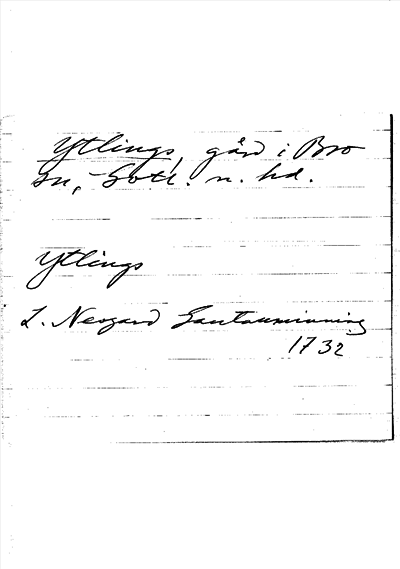 Ytlings, gård i Bro
sn, Gotl. n. hd.
Ytlings
L. Neogard Gautauminning
1732